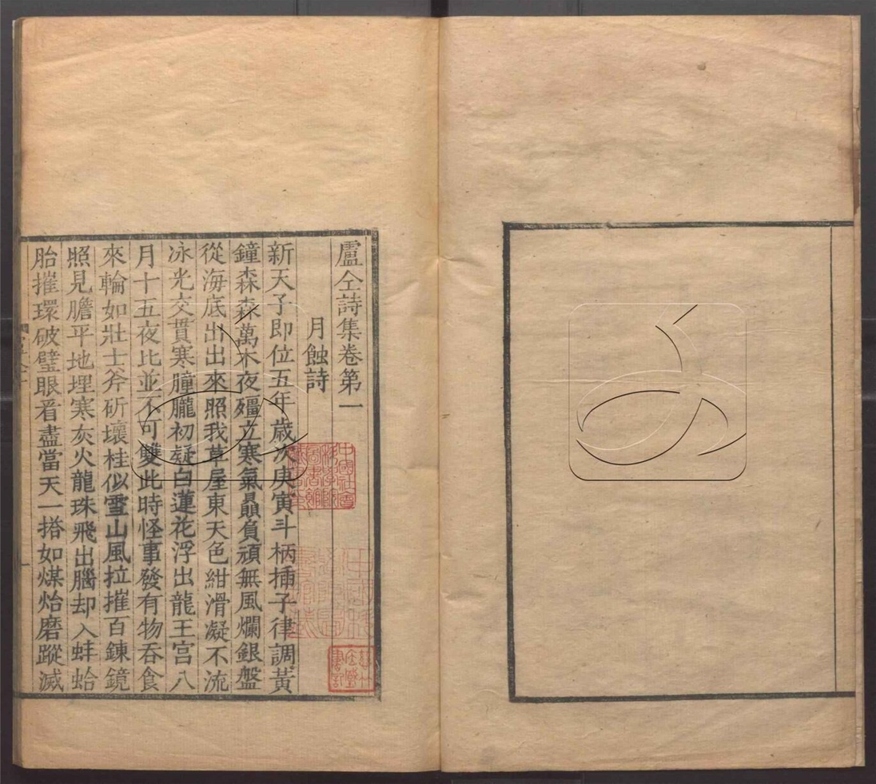 盧仝詩集卷第一
月蝕詩
新天子即位五年歲次庚寅斗柄揷子律調黃
鐘森森萬木夜殭立寒氣贔負頑無風爛銀盤
從海底出出來照我草屋東天色紺滑凝不流
冰光交貫寒朣朧初疑白蓮花浮出龍王宮八
月十五夜比並不可雙此時怪事發有物吞食
來輪如壯士斧斫壞桂似雪山風拉摧百鍊鏡
照見膽平地埋寒灰火龍珠飛出腦却入蚌蛤
胎摧環破璧眼看盡當天一搭如煤炲磨蹤滅